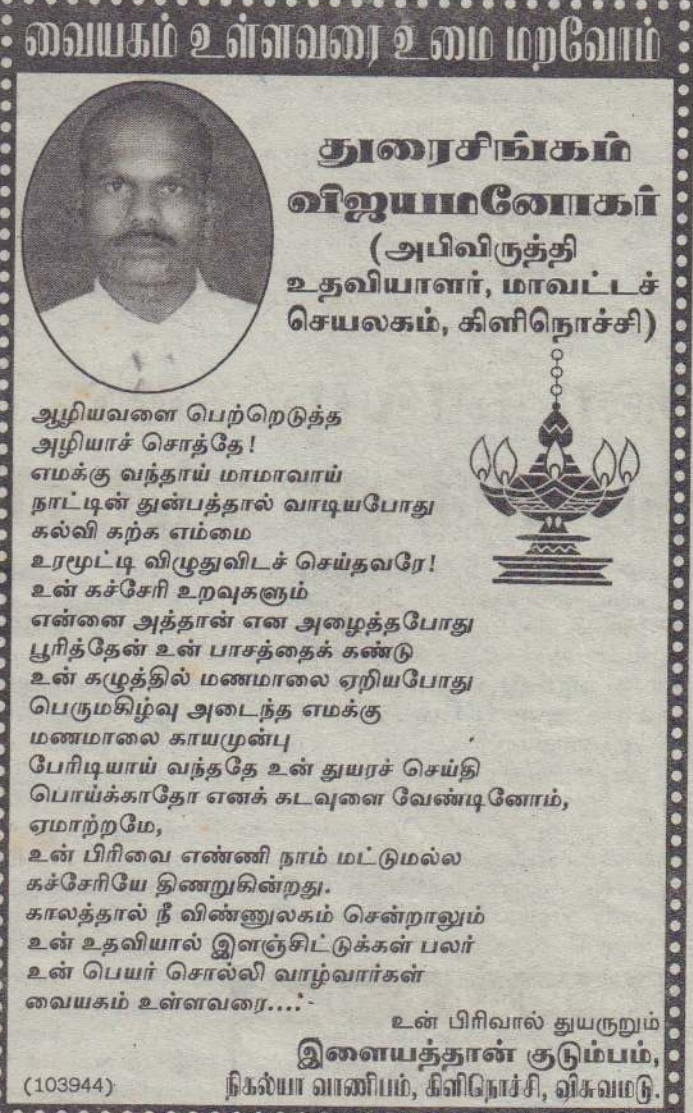 வையகம் உள்ளவரை உமை மறவோம்
துரைசிங்கம்
விஜயமனோகர்
(அபிவிருத்தி
உதவியாளர், மாவட்டச்
செயலகம், கிளிநொச்சி)
ஆழியவளை பெற்றெடுத்த
அழியாச் சொத்தே!
எமக்கு வந்தாய் மாமாவாய்
நாட்டின் துன்பத்தால் வாடியபோது
கல்வி கற்க எம்மை
உரமூட்டி விழுதுவிடச் செய்தவரே!
உன் கச்சேரி உறவுகளும்
என்னை அத்தான் என அழைத்தபோது
பூரித்தேன் உன் பாசத்தைக் கண்டு
உன் கழுத்தில் மணமாலை ஏறியபோது
பெருமகிழ்வு அடைந்த எமக்கு
மணமாலை காயமுன்பு
பேரிடியாய் வந்ததே உன் துயரச் செய்தி
பொய்க்காதோ எனக் கடவுளை வேண்டினோம்,
ஏமாற்றமே,
உன் பிரிவை எண்ணி நாம் மட்டுமல்ல
கச்சேரியே திணறுகின்றது.
காலத்தால் நீ விண்ணுலகம் சென்றாலும்
உன் உதவியால் இளஞ்சிட்டுக்கள் பலர்
உன் பெயர் சொல்லி வாழ்வார்கள்
வையகம் உள்ளவரை....
உன் பிரிவால் துயருறும்
இளையத்தான் குடும்பம்,
(103944) நிகல்யா வாணிபம், கிளிநொச்சி, விசுவமடு.